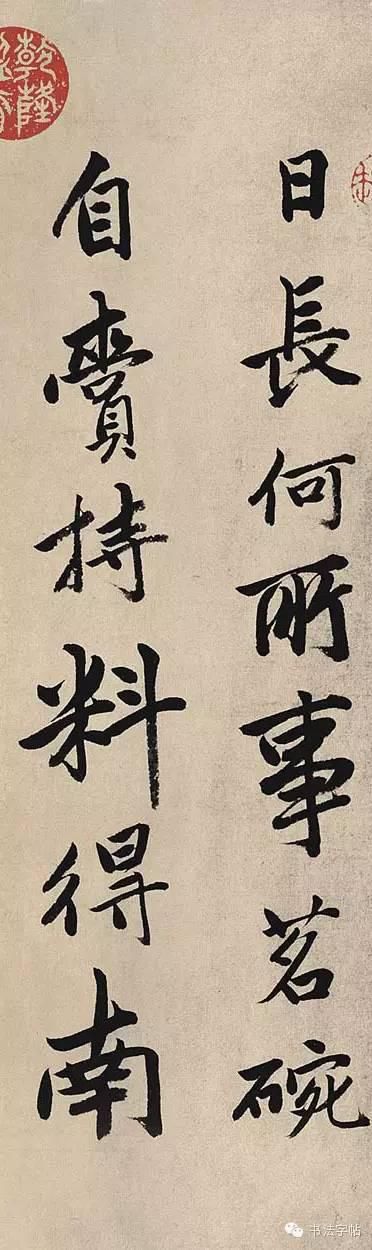 日長何所事茗碗
自賫持料得南
乾隆
书法字帖